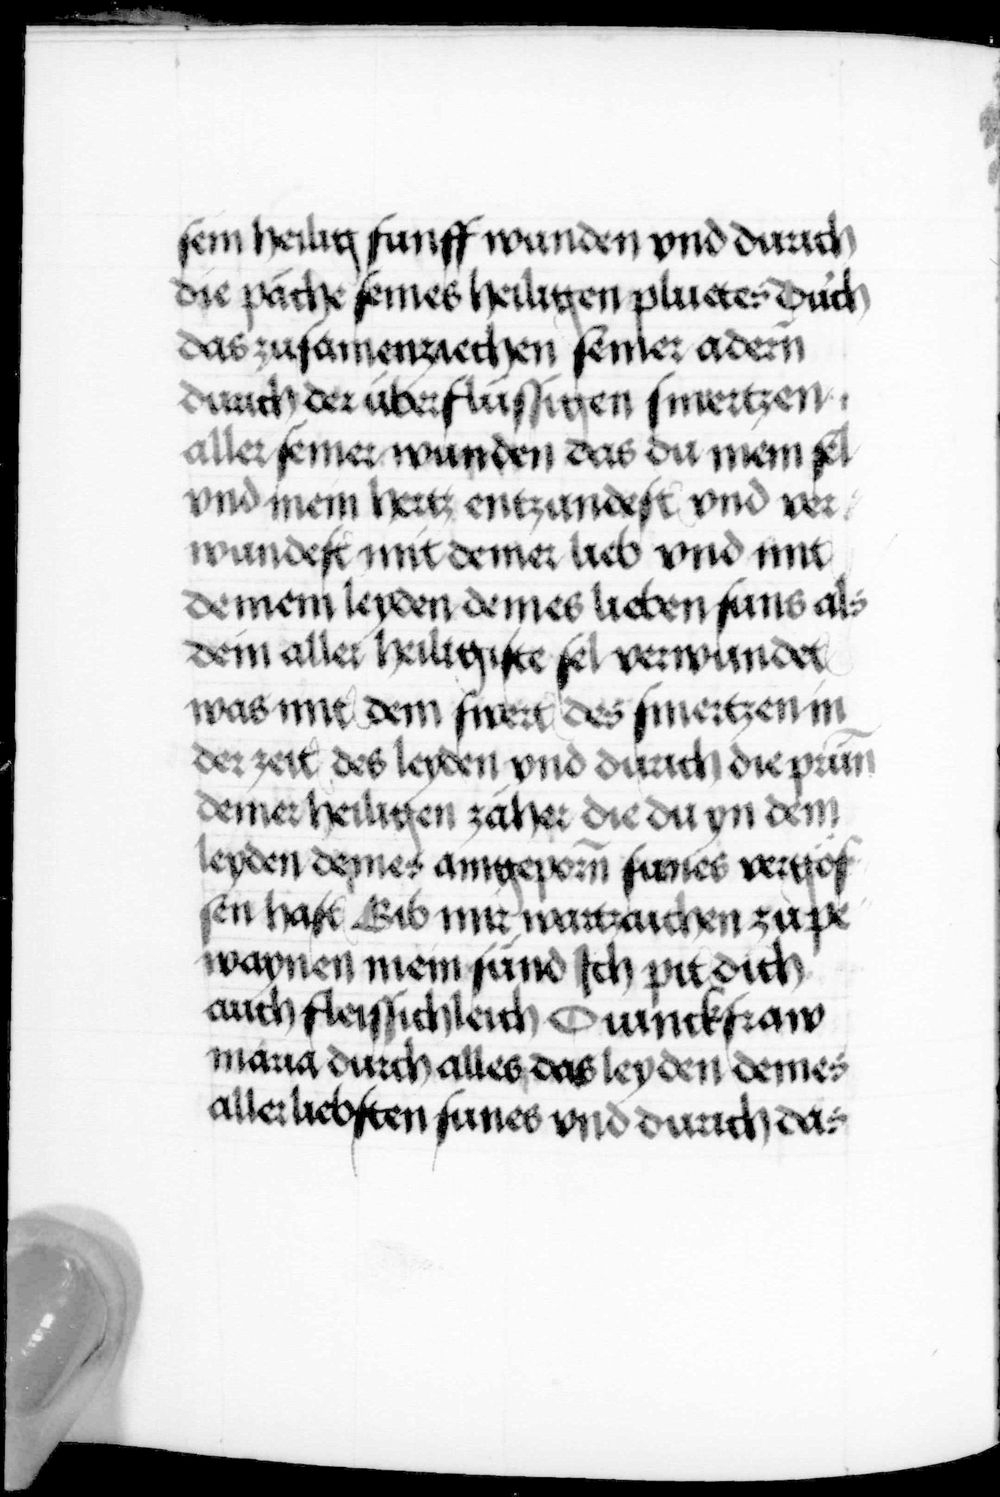 sein heilig funff wunden vnd durich
die päche seines heiligen pluetes Durch
das zusamenziechen seiner aderñ
durich der überflüssigen smertzen
aller seiner wunden das du mein sel
vnd mein hertz entzundest vnd ver
wundest mit deiner lieb vnd mit
de mein leyden deines lieben suns als
dein aller heiligiste sel verwundet
was mit dem swert des smertzen in
der zeit des leyden vnd durich die prün̄
deiner heiligen zäher die du yn dem
leyden deines aingeporn̄ sunes vergós
sen hast Gib mir wartzaichen zu pe
waynen mein sünd Ich pit dich
auch fleissichleich O iunckfraw
maria durch alles das leyden deines
aller liebsten sunes vnd durich das